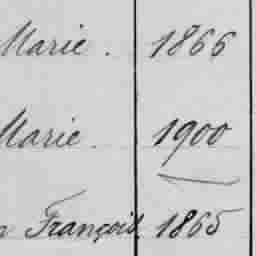 Marie. 1866
Marie. 1900
François 1865